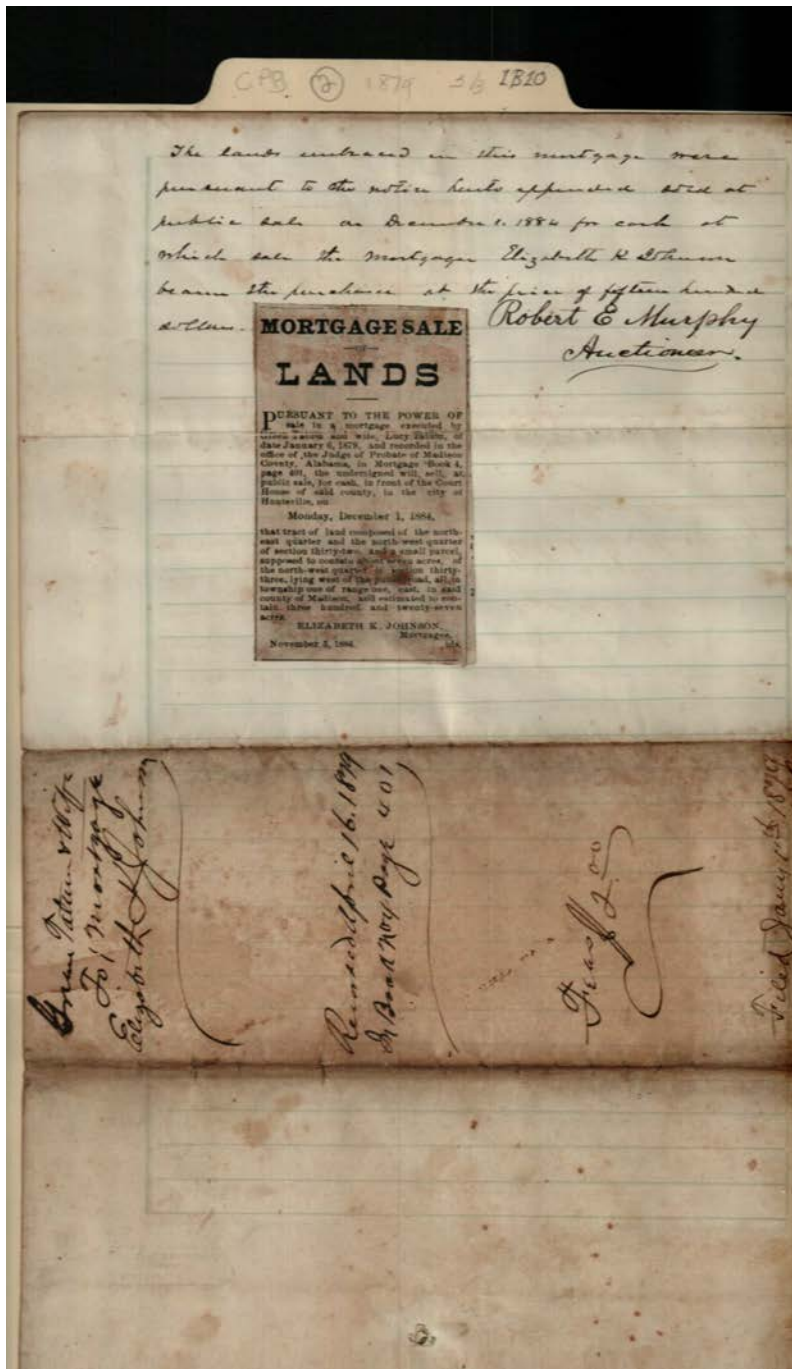 CPB 2 1879 3/3 IB10
The lands embraced in this mortgage were
pursuant to the notice hereto appended sold at
public sale on December 1. 1884 for cash at
which sale the mortgagee Elizabeth K Johnson
became the purchaser at the price of fifteen hundred
dollars.
Robert E Murphy
Auctioneer.
MORTGAGE SALE
OF
LANDS
PURSUANT TO THE POWER OF
sale in a mortgage executed by
Green Tatum and wife, Lucy Tatum, of
date January 6, 1879, and recorded in the
office of the Judge of Probate of Madison
County, Alabama, in Mortgage Book 4,
page 401, the undersigned will sell, at
public sale, for cash, in front of the Court
House of said county, in the city of
Huntsville, on
Monday, December 1, 1884,
that tract of land composed of the north-
east quarter and the north-west quarter
of section thirty-two, and a small parcel,
supposed to contain about seven acres, of
the north-west quarter of section thirty-
three, lying west of the public road, all in
township one of range one, east, in said
county of Madison, and estimated to con-
tain three hundred and twenty-seven
acres.
ELIZABETH K. JOHNSON,
Mortgagee.
November 5, 1884.
Green Tatum & Wife
To; Mortgage
Elizabeth K Johnson
Recorded April 16. 1879
In Book No 4 Page 401
Fees $2.00
Filed Jany 1879